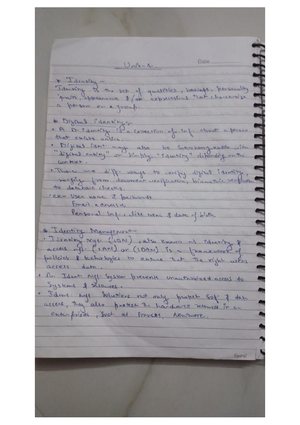 Unit - 
Date
* Identity -
Identity is the set of qualities, beliefs, personality
traits, appearance & / or expressions that characterize
a person or a group.
* Digital Identity -
A D. Identity is a collection of inf. about a person
that exists online.
Digital Iden. may also be synonymous with
"digital entity" or simply "identity" depending on the
context.
There are diff. ways to verify digital identity,
ranging from document verification, biometric
to database checks.
can User name & passwords
Email address
Personal inf. like name & date of birth
* Identity Management -
Identity mgt (IDM) also known as Identity &
access mgt (IAM) is a framework of
policies & technologies to ensure that the right users
access data.
An Iden. mgt. System prevents unauthorized access to
systems & resources.
Iden. mgt. Solutions not only protect soft. & data
access, they also protect the hardware resources in an
enterprise, such as servers, networks.